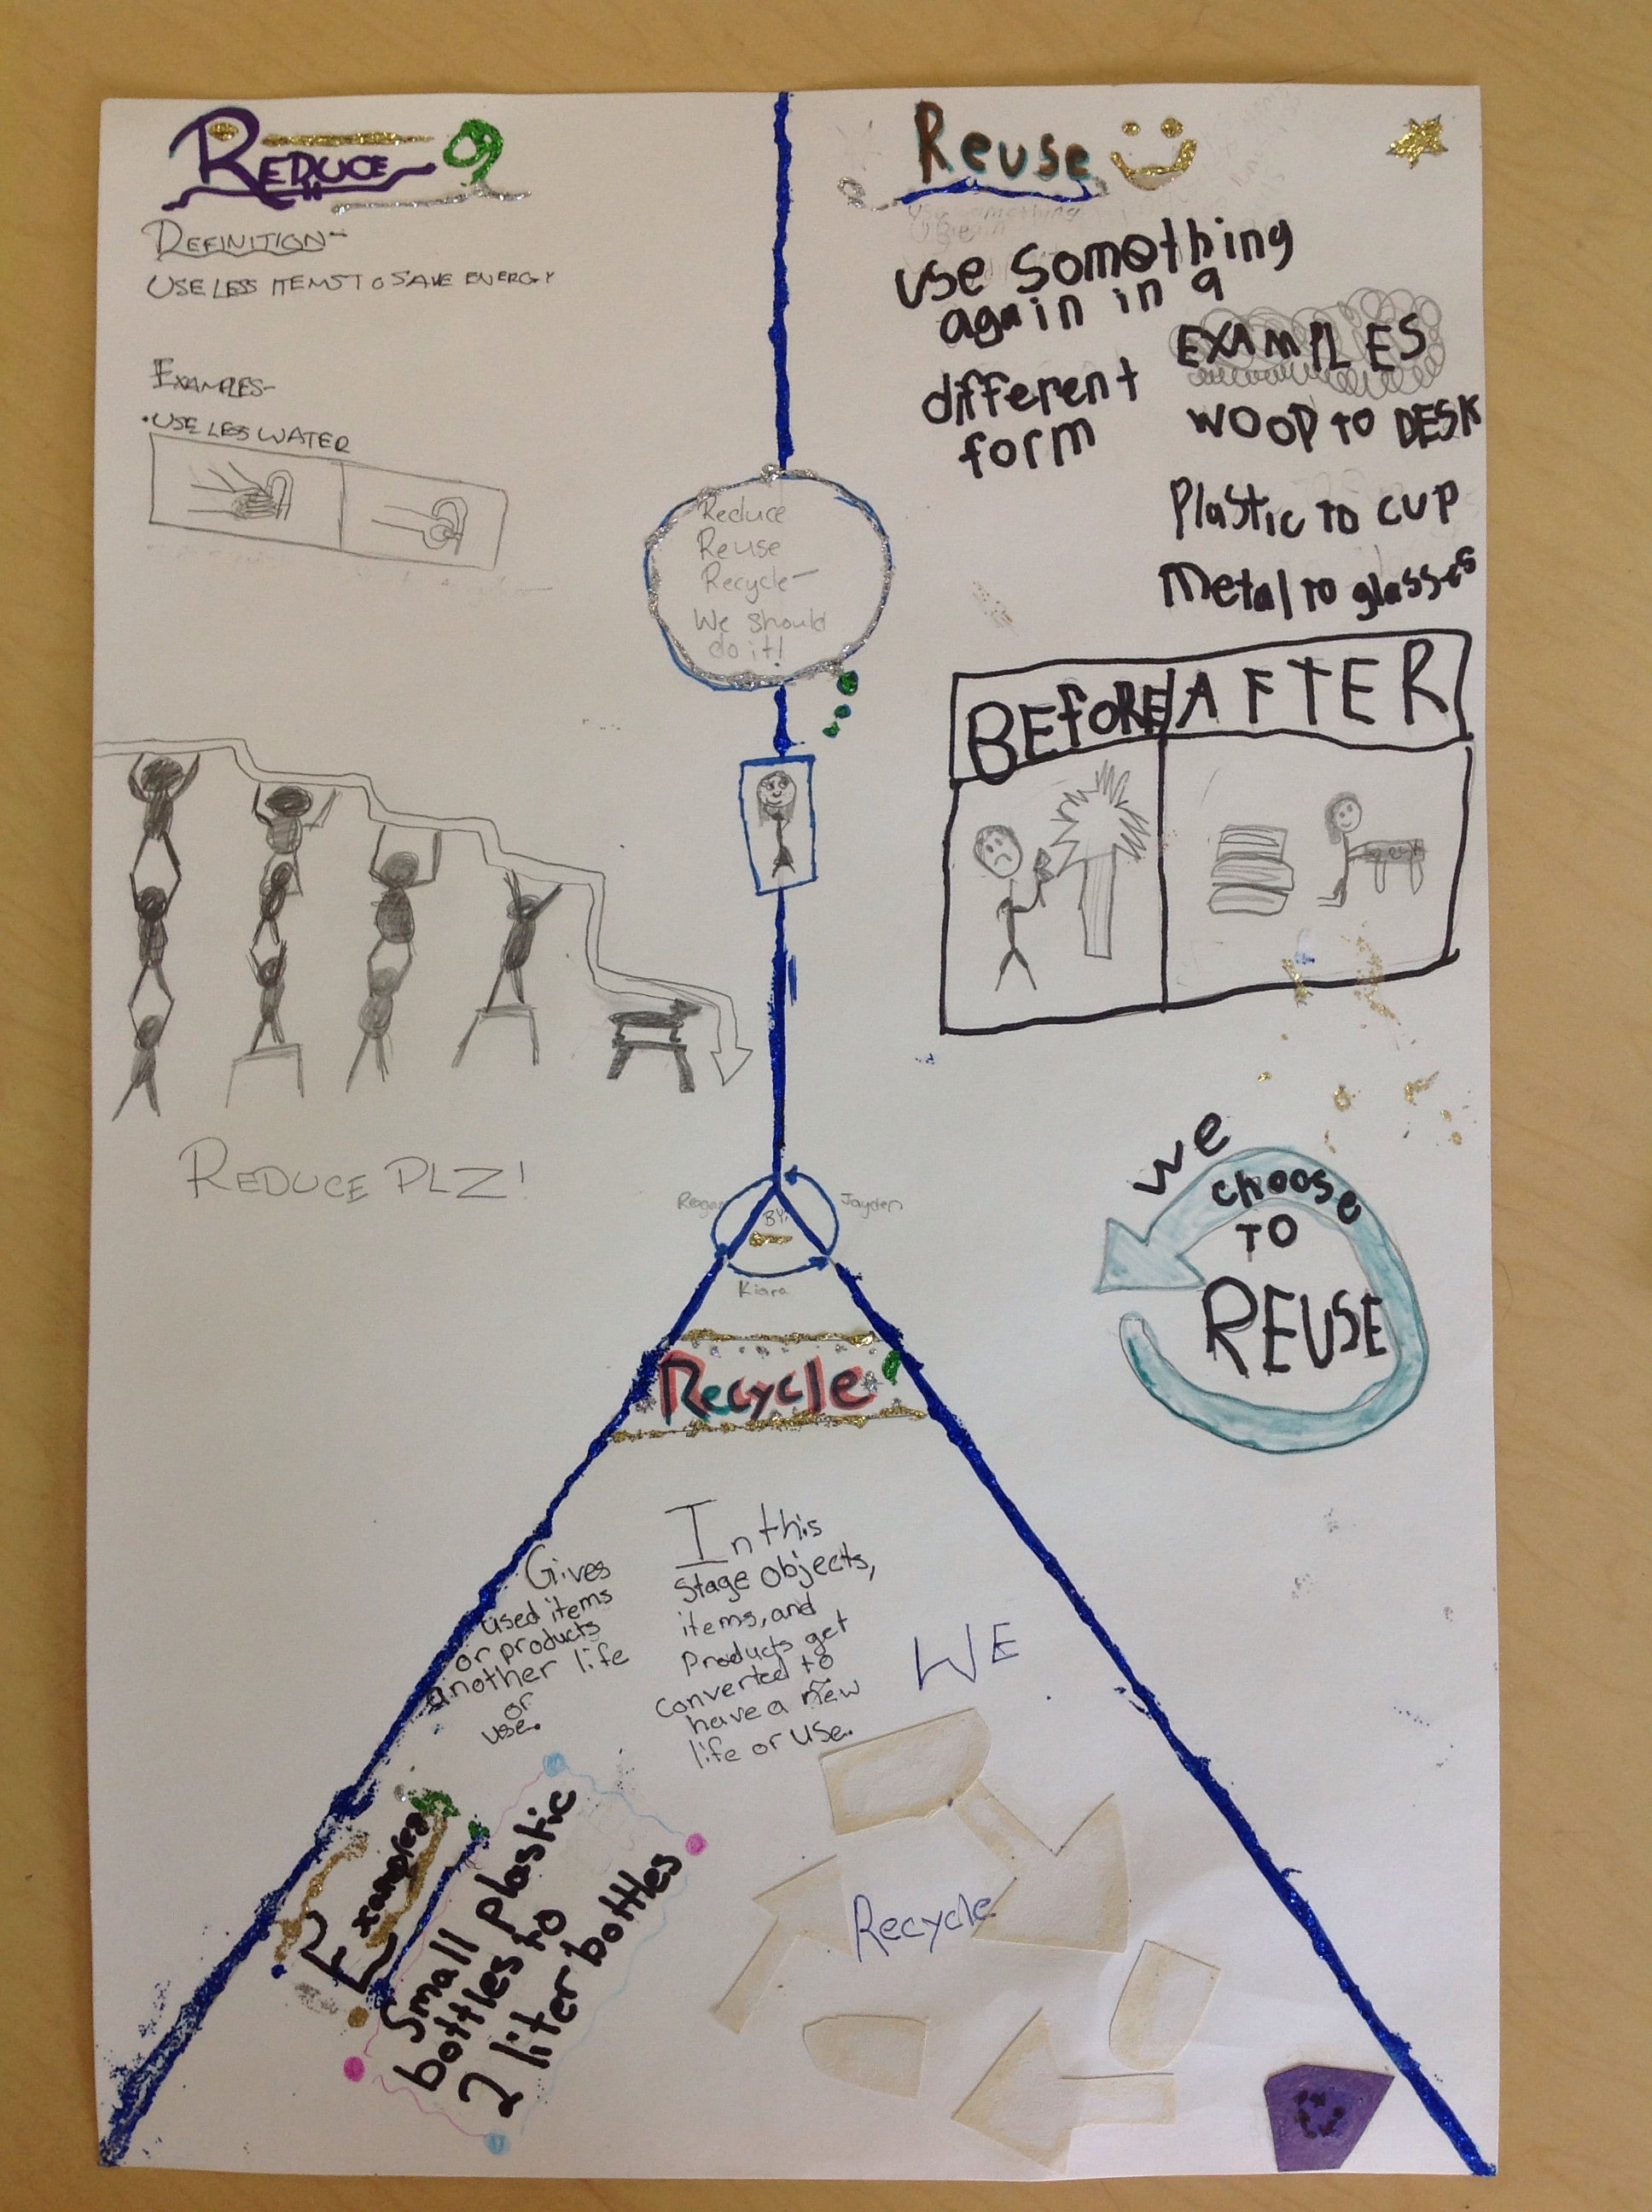 REDUCE
DEFINITION-
USE LESS ITEMS TO SAVE ENERGY
EXAMPLES-
•USE LESS WATER
REDUCE PLZ!
Reuse
use something
again in a
different
form
EXAMPLES
WOOD TO DESK
Plastic TO cup
Metal TO glasses
BEfORE AFTER
We
choose
TO
REUSE
Reduce
Reuse
Recycle-
We should
do it!
Reagan
BY:
Jayden
Kiara
Recycle
Gives
used items
or products
another life
or
use.
In this
stage objects,
items, and
Products get
converted to
have a new
life or use.
Examples
Small plastic
bottles to
2 liter bottles
WE
Recycle